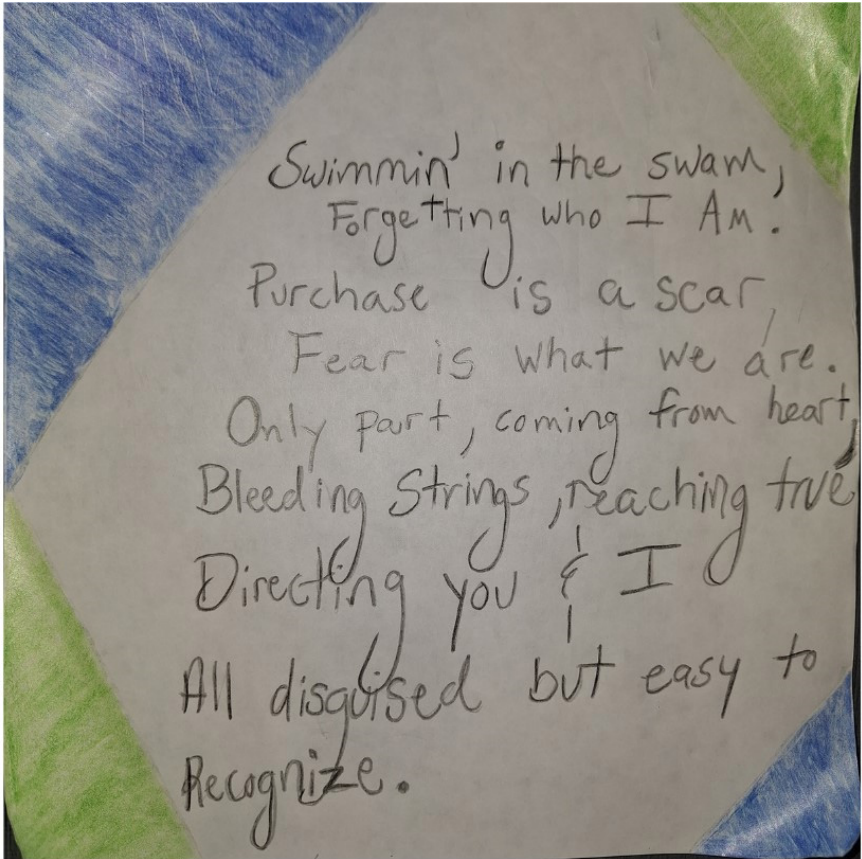 Swimmin' in the swam,
Forgetting who I Am.
Purchase is a scar,
Fear is what we are.
Only part, coming from heart,
Bleeding Strings, reaching true
Directing you & I
All disguised but easy to
Recognize.